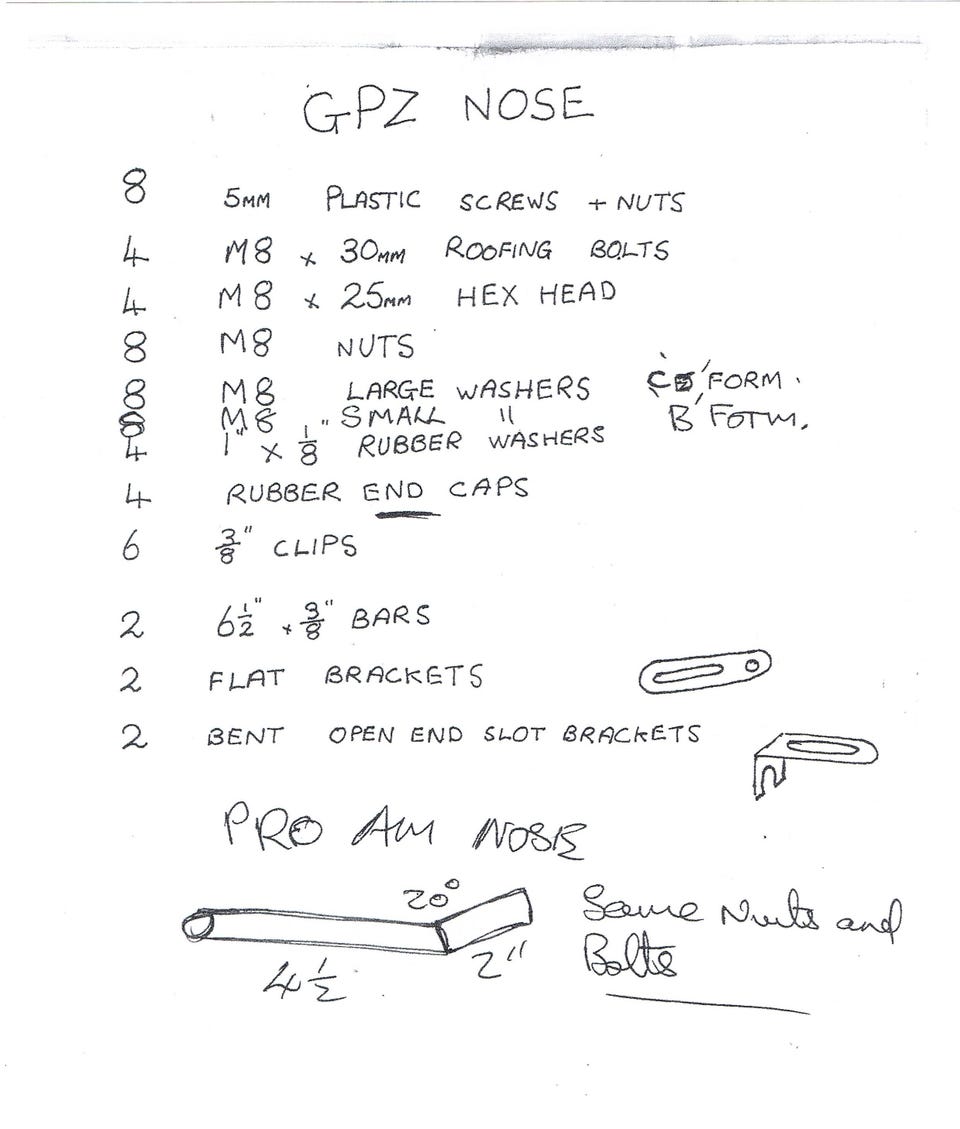 GPZ NOSE
8 5MM PLASTIC SCREWS + NUTS
4 M8 x 30MM ROOFING BOLTS
4 M8 x 25MM HEX HEAD
8 M8 NUTS
8 M8 LARGE WASHERS 'FORM.
8 M8 SMALL " B' FORM.
4 1" x 1/8" RUBBER WASHERS
4 RUBBER END CAPS
6 3/8" CLIPS
2 6 1/2" x 3/8" BARS
2 FLAT BRACKETS
2 BENT OPEN END SLOT BRACKETS
PRO AM NOSE
20°
4 1/2 2"
Same Nuts and
Bolts